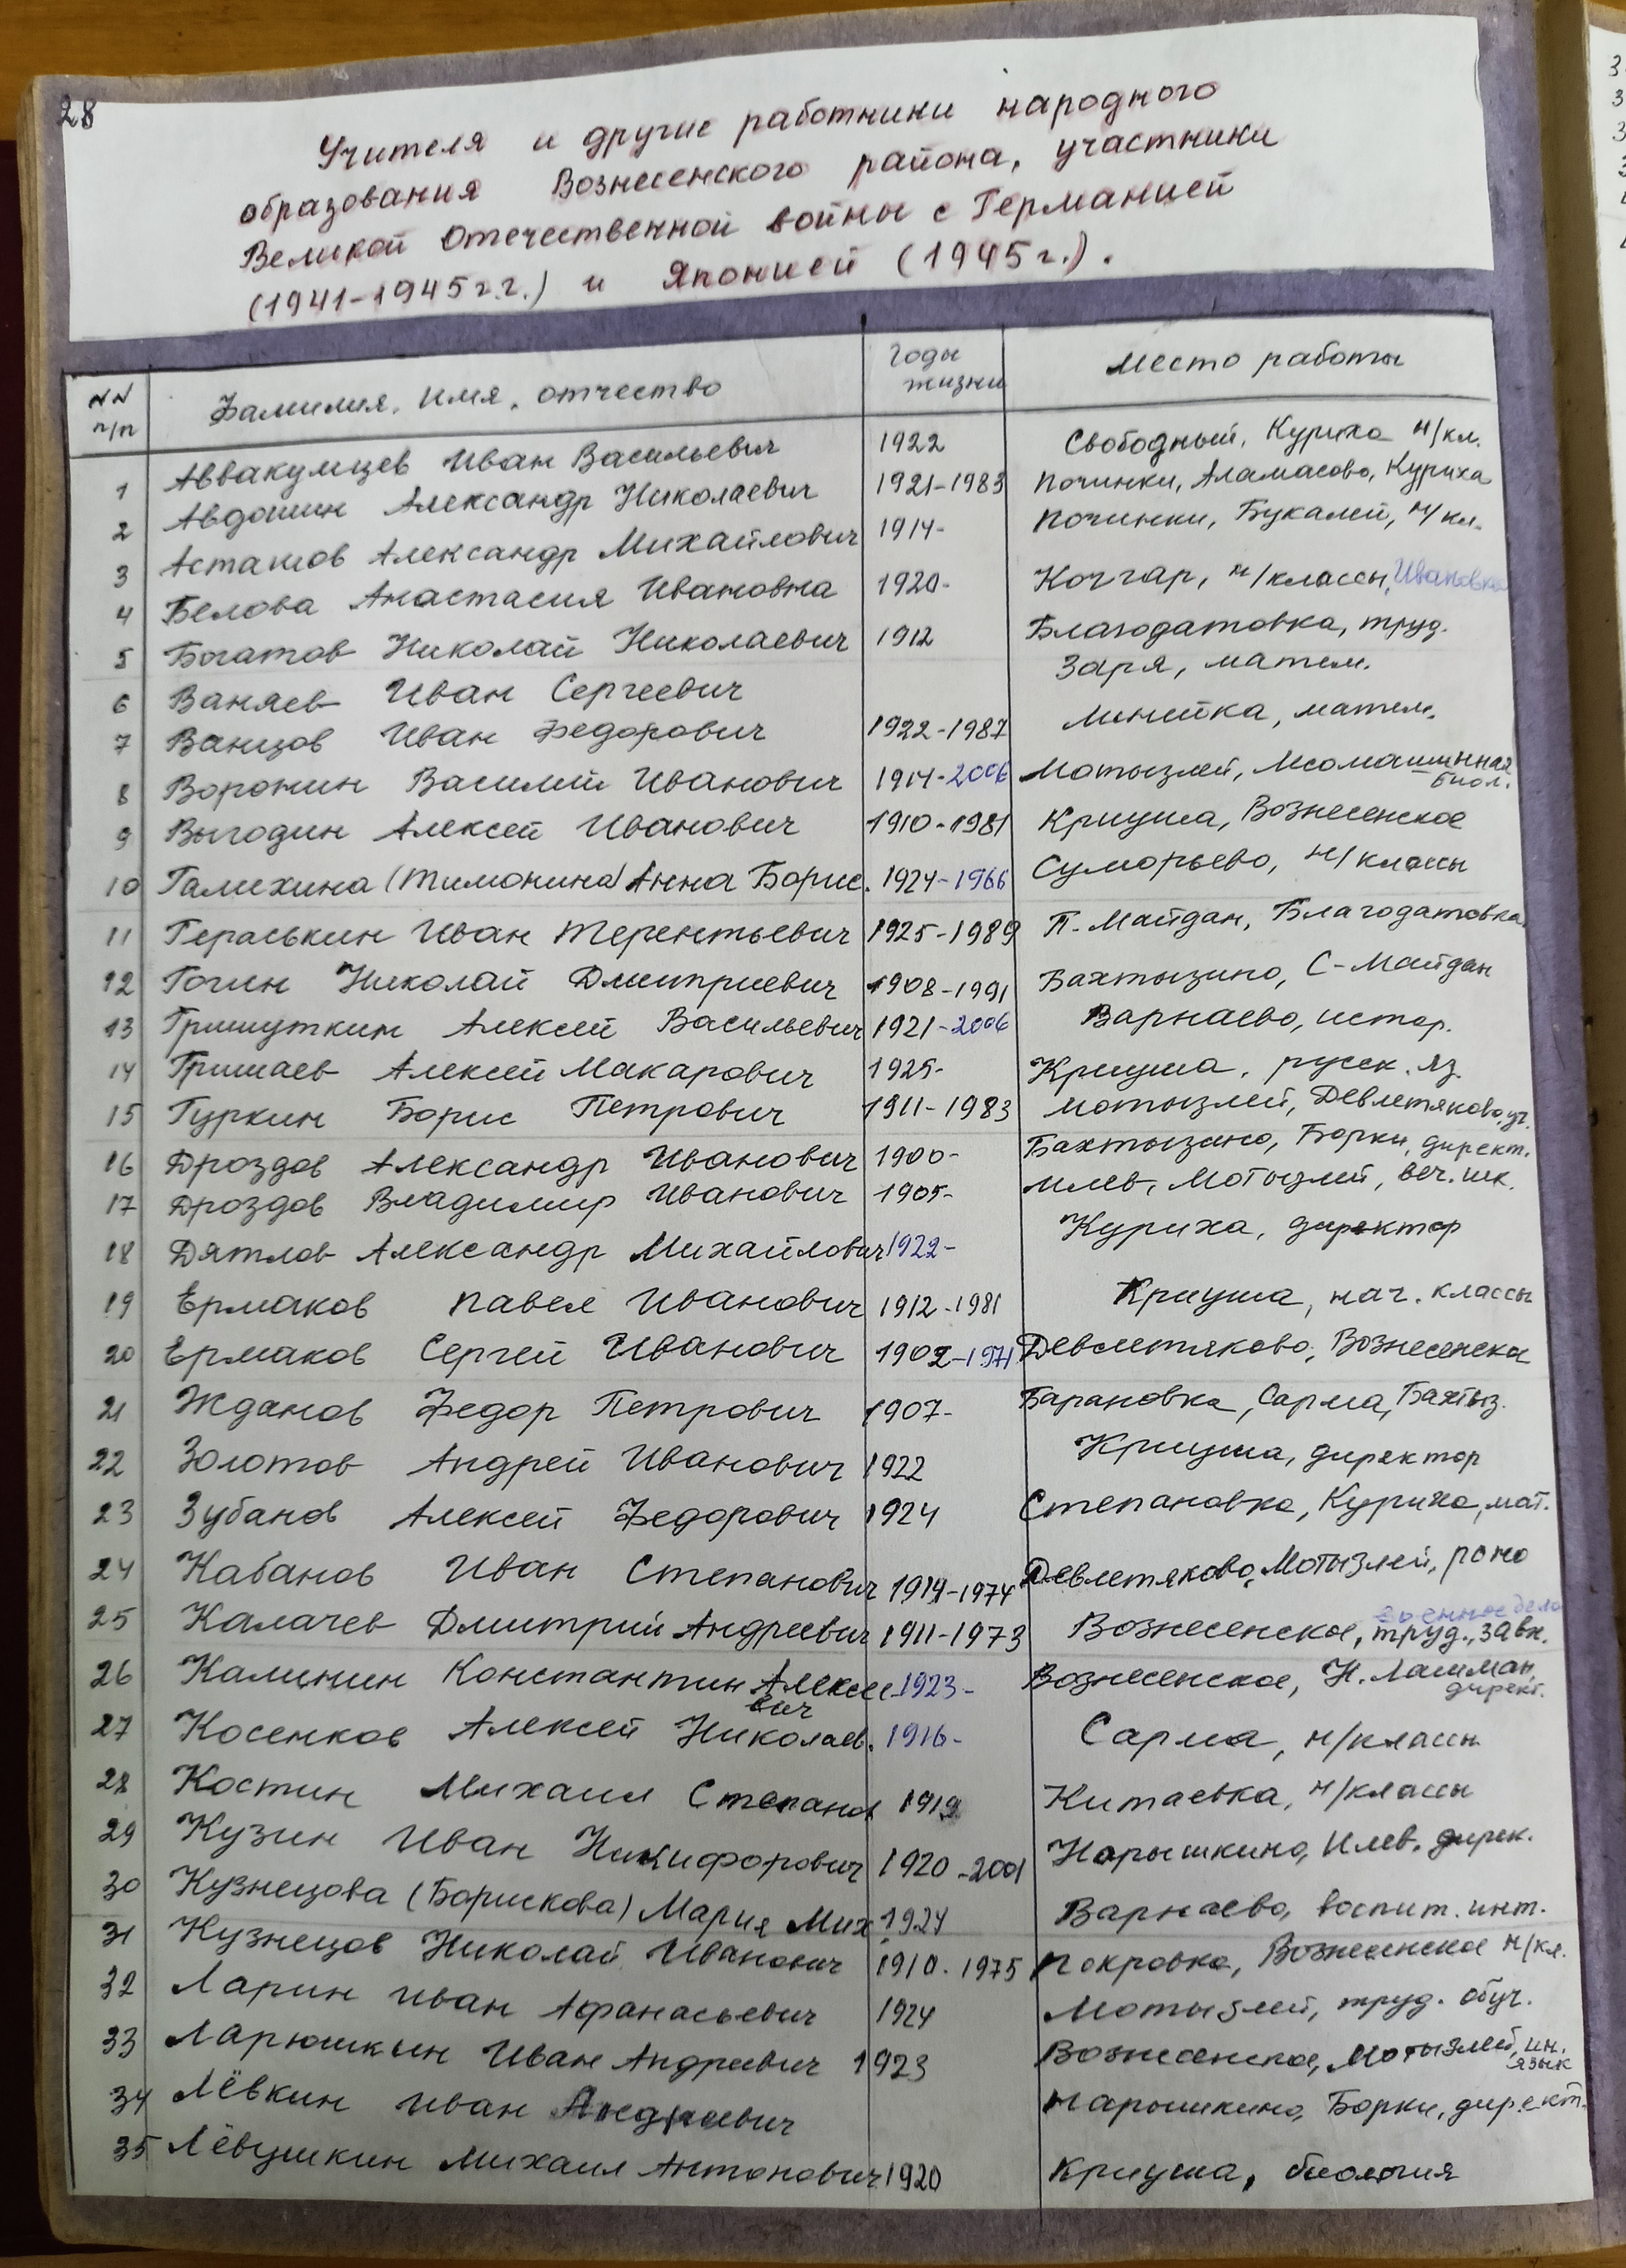 28
Учителя и другие работники народного
образования Вознесенского района, участники
Великой Отечественной войны с Германией
(1941-1945г.г.) и Японией (1945г.).
NN п/п Фамилия, имя, отчество Годы жизни Место работы
1 Аввакумцев Иван Васильевич 1922 Свободный, Куриха н/кл.
2 Авдошин Александр Николаевич 1921-1983 Починки, Аламасово, Куриха
3 Асташов Александр Михайлович 1914- Починки, Букалей, н/кл.
4 Белова Анастасия Ивановна 1920- Кочгар, н/классы, Ивановка
5 Богатов Николай Николаевич 1912 Благодатовка, труд.
6 Ваняев Иван Сергеевич Заря, матем.
7 Ванцов Иван Федорович 1922-1987 Линейка, матем.
8 Воронин Василий Иванович 1914-2006 Мотызлей, Лесомашинная
биол.
9 Выгодин Алексей Иванович 1910-1981 Криуша, Вознесенское
10 Галихина (Тимонина) Анна Борис. 1924-1966 Суморьево, н/классы
11 Гераськин Иван Терентьевич 1925-1989 П. Майдан, Благодатовка
12 Гогин Николай Дмитриевич 1908-1991 Бахтызино, С-Майдан
13 Гришуткин Алексей Васильевич 1921-2006 Варнаево, истор.
14 Гришаев Алексей Макарович 1925- Криуша, русск. яз.
15 Гуркин Борис Петрович 1911-1983 Мотызлей, Девлетяково, уч.
16 Дроздов Александр Иванович 1900- Бахтызино, Борки, директ.
17 Дроздов Владимир Иванович 1905- Илев, Мотызлей, веч. шк.
18 Дятлов Александр Михайлович 1922- Куриха, директор
19 Ермаков Павел Иванович 1912-1981 Криуша, нач. классы
20 Ермаков Сергей Иванович 1902-1971 Девлетяково, Вознесенское
21 Жданов Федор Петрович 1907- Барановка, Сарма, Бахтыз.
22 Золотов Андрей Иванович 1922 Криуша, директор
23 Зубанов Алексей Федорович 1924 Степановка, Куриха, мат.
24 Кабанов Иван Степанович 1914-1974 Девлетяково, Мотызлей, роно
25 Калачев Дмитрий Андреевич 1911-1973 Вознесенское, труд., завх.
военное дело
26 Калинин Константин Алексе
евич 1923- Вознесенское, Н. Лашман,
директ.
27 Косенков Алексей Николаев. 1916- Сарма, н/классы
28 Костин Михаил Степанов 1919 Китаевка, н/классы
29 Кузин Иван Никифорович 1920-2001 Нарышкино, Илев. дирек.
30 Кузнецова (Борискова) Мария Мих. 1924 Варнаево, воспит. инт.
31 Кузнецов Николай Иванович 1910-1975 Покровка, Вознесенское н/кл.
32 Ларин Иван Афанасьевич 1924 Мотызлей, труд. обуч.
33 Ларюшкин Иван Андреевич 1923 Вознесенское, Мотызлей, ин.
язык
34 Лёвкин Иван Андреевич Нарышкино, Борки, директ.
35 Лёвушкин Михаил Антонович 1920 Криуша, биология